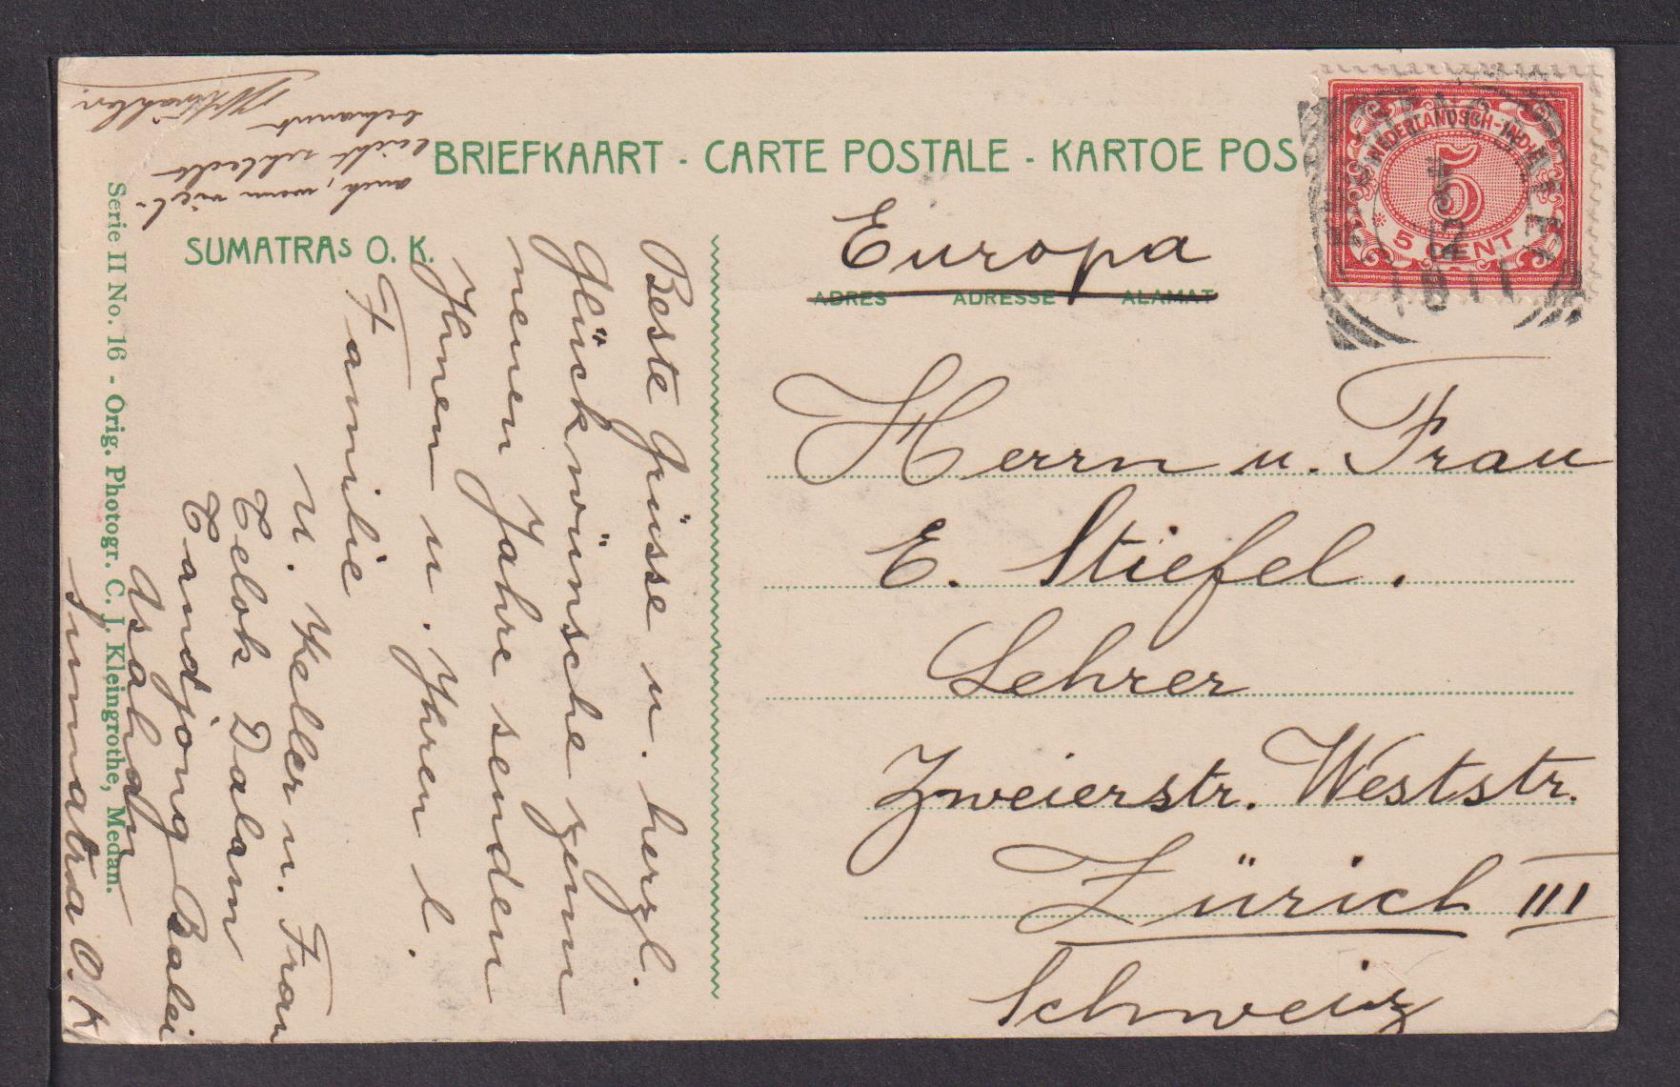 BRIEFKAART - CARTE POSTALE - KARTOE POS
SUMATRAS O. K.
ADRES ADRESSE ALAMAT
Serie II No. 16 - Orig. Photogr. C. J. Kleingrothe, Medan.
NEDERLANDSCH-INDIË
5
5 CENT
Europa
Herrn u. Frau
E. Stiefel.
Lehrer
Zweierstr. Weststr.
Zürich III
Schweiz
Beste Grüsse u. herzl.
Glückwünsche zum
neuen Jahre senden
Ihnen u. Ihren l.
Familie
Keller u. Frau
Telok Dalam
Tandjong Balei
Asahan
Sumatra O. K
auch, wenn viel-
leicht schlecht
bekannt